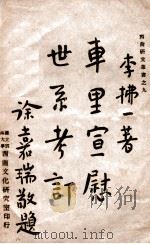 西南研究叢書之九
李拂一著
車里宣慰
世系考訂
徐嘉瑞敬題
國立雲南大學西南文化研究室印行